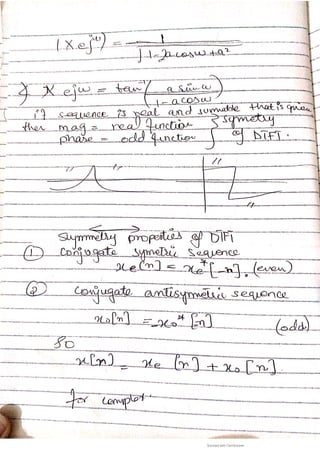 |X e^jω| = 1 / √1-2acosω+a²
∠ X e^jω = tan⁻¹ ( a sin ω / 1-acosω )
if sequence is real and summable that is given
then mag = real function } symetry
phase = odd function } of DTFT.
Symmetry properties of DTFT
① Conjugate symetric Sequence
xe[n] = xe*[-n]. (even)
② Conjugate antisymetric sequence
xo[n] = -xo*[-n] (odd)
So
x[n] = xe[n] + xo[n]
for complex